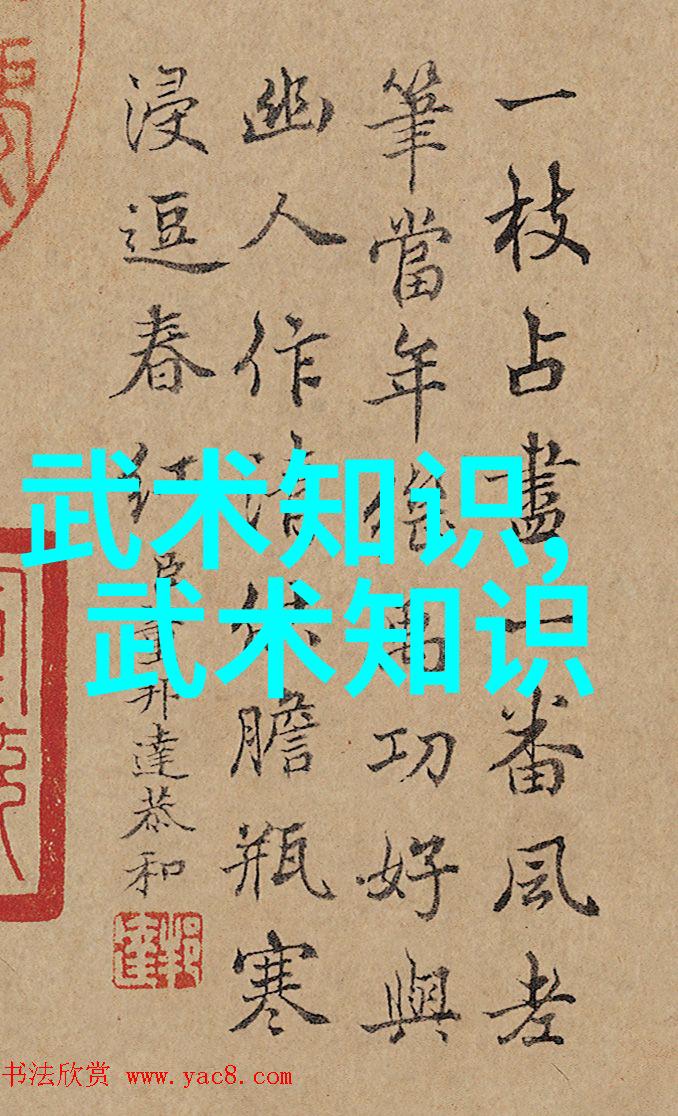 一枝占盡一番風老
筆當年功好與
幽人作清供膽瓶寒
浸逗春紅臣董邦達恭和
邦達
武术知识,
武术知识
书法欣赏 www.yac8.com